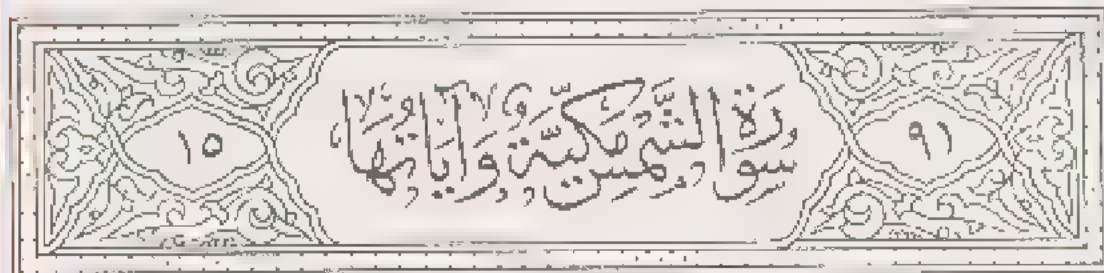 ٩١
سُورَةُ الشَّمْسِ مَكِّيَّةٌ وَآيَاتُهَا
١٥